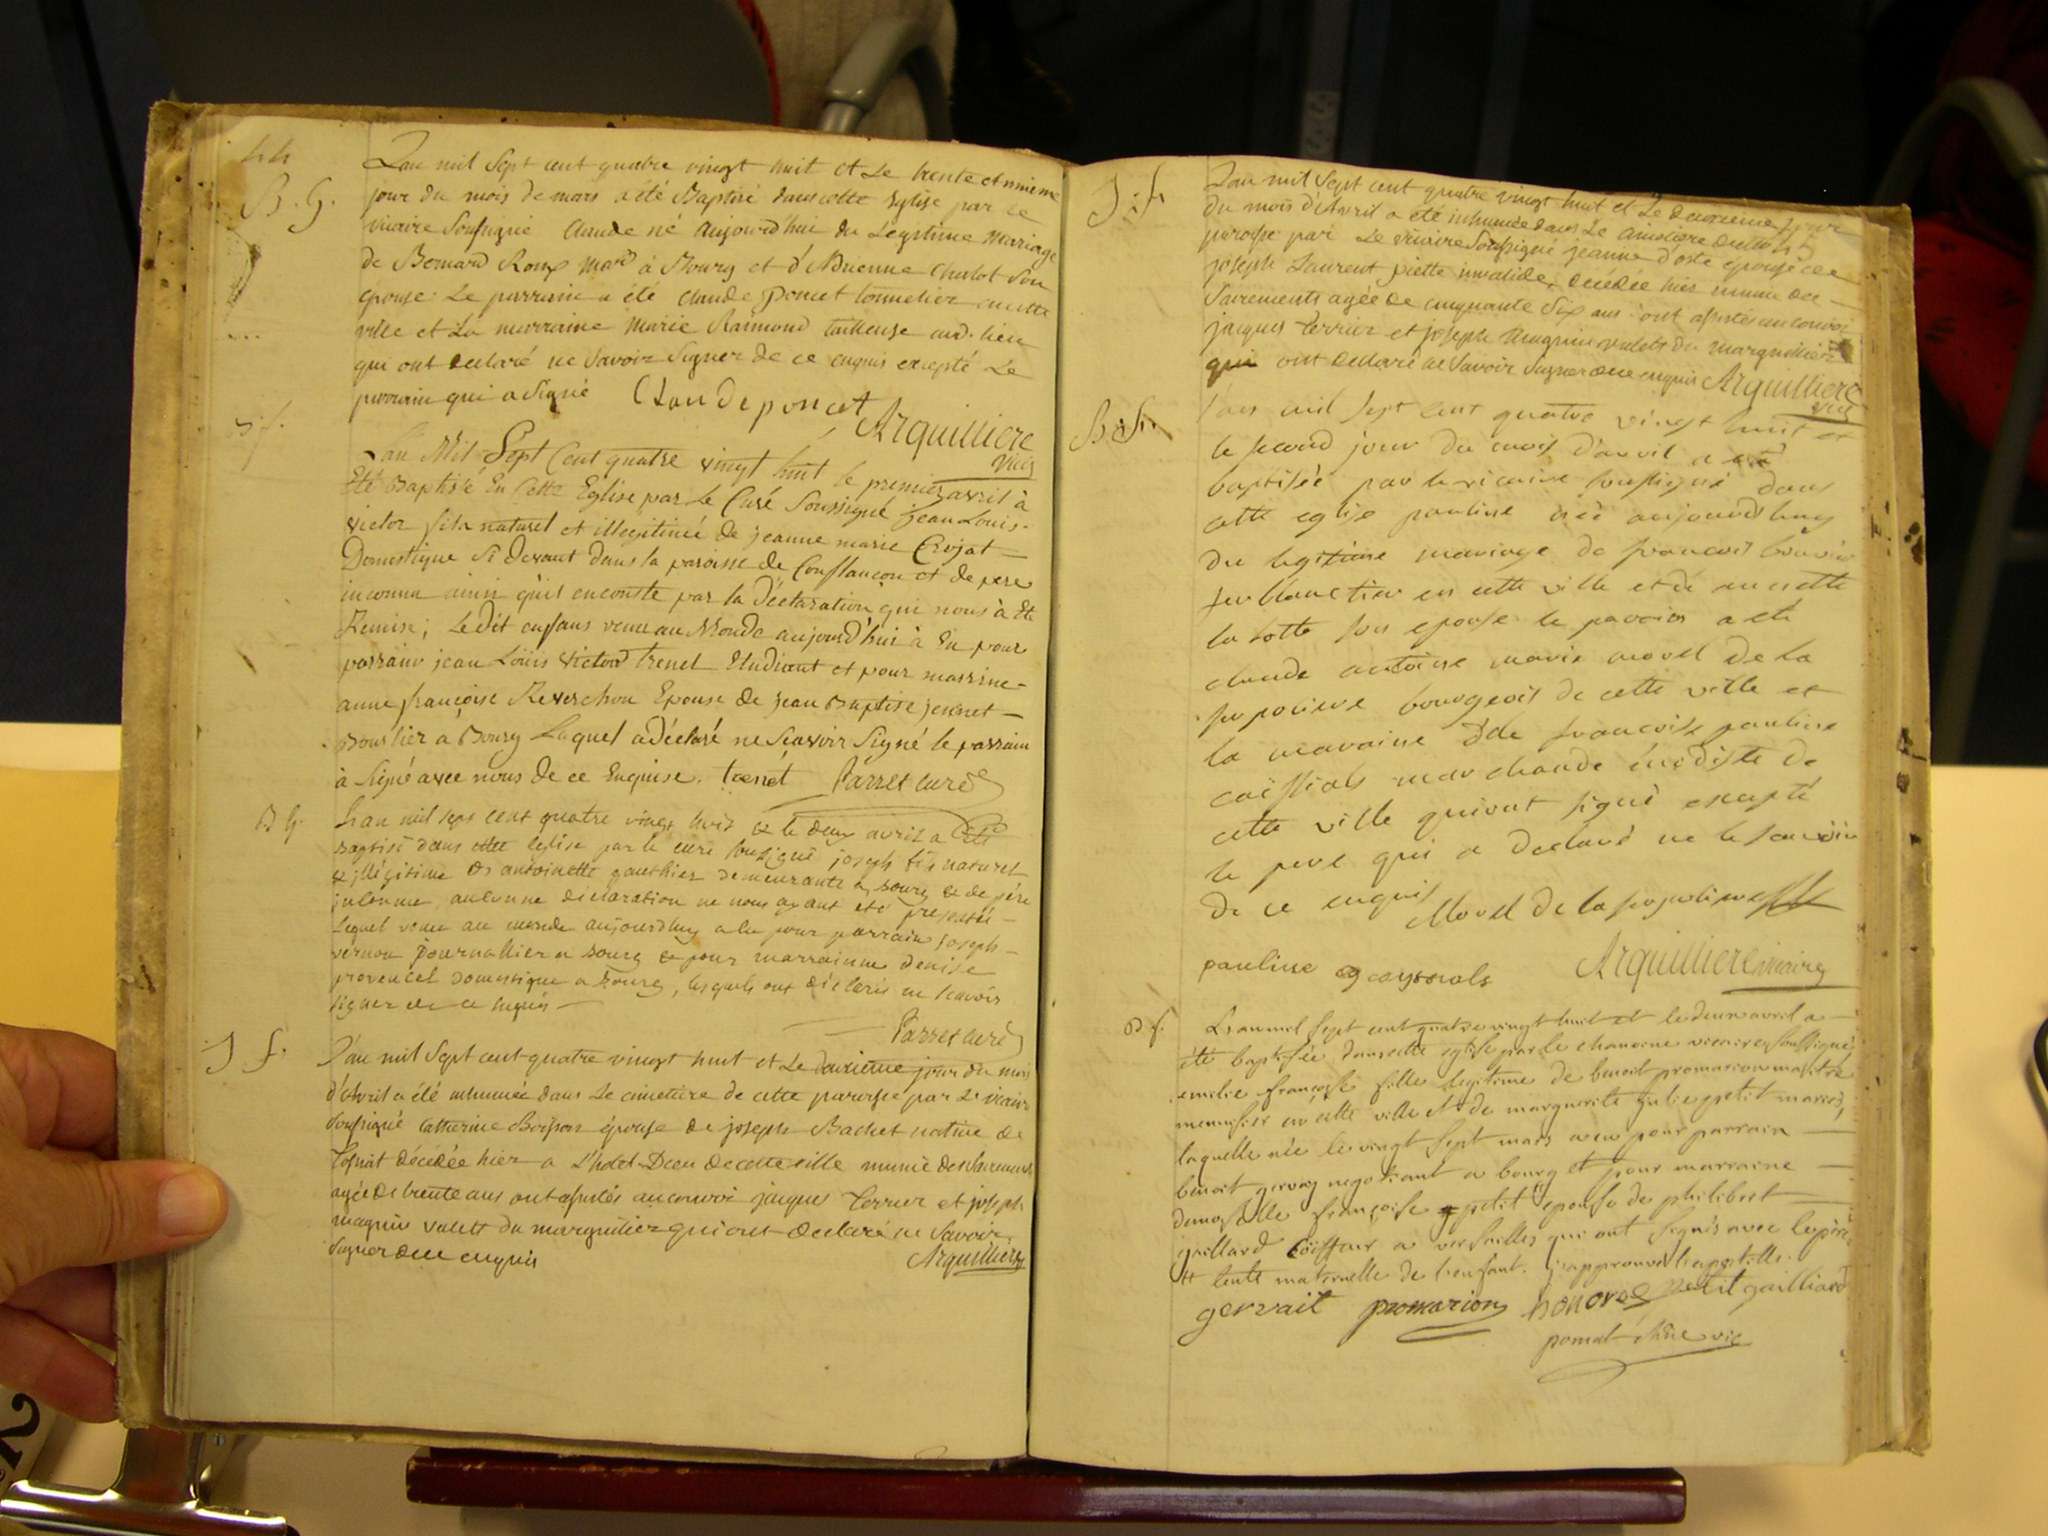 44
B. G.
L'an mil Sept cent quatre vingt huit et Le trente et unieme
jour du mois de mars a été Baptisé dans cette Eglise par le
vicaire Soussigné Claude né aujourd'hui du Legitime mariage
de Bernard Roux mard à Bourg et d'Adrienne Chulot Son
épouse. Le parrain a été Claude poncet tonnelier en cette
ville et La marraine Marie Raimond tailleuse aud. lieu
qui ont declaré ne Savoir Signer de ce enquis excepté Le
parrain qui a Signé Claude poncet
Arquilliere
vic
L'an Mil Sept Cent quatre vingt huit le premier avril à
Eté Baptisé En Cette Eglise par Le Curé Soussigné jean Louis
victor fils naturel et illegitimé de jeanne marie Crojat
Domestique Si devant dans la paroisse de Conflançon et de pere
inconnu ainsi qu'il en conste par la Déclaration qui nous à Eté
Remise; Le Dit enfans venu au Monde aujourd'hui à Eu pour
parrain jean Loüis victor trenet Etudiant et pour marrine
anne françoise Reverchon Epouse de jean Baptiste jennet
Bourlier a Bourg Laquel a déclaré ne Sçavoir Signé le parrain
à Signé avec nous de ce Enquise. trenet Parret curé
B G.
L'an mil sept cent quatre vingt huit & le deux avril a été
Baptisé dans cette Eglise par le curé soussigné joseph fils naturel
& illégitime de antoinette gauthier demeurante a Bourg & de père
inconnu, aucunne déclaration ne nous ayant été présentée
Lequel venu au monde aujourdhuy a Eu pour parrain joseph
vernou journallier a Bourg & pour marrainne denise
provencel Domestique a Bourg, lesquels ont déclarés ne scavoir
signer de ce enquis
Parret curé
J f.
L'an mil Sept cent quatre vingt huit et Le deuxieme jour du mois
d'Avril a été inhumée dans Le cimetiere de cette paroisse par Le vicaire
Soussigné Catherine Boisson épouse de joseph Bachet native de
décédée hier a L'hotel Dieu de cette ville munie des Sacremens
agée de trente ans ont assistés au convoi jacques Terrier et joseph
magnin valets du marguillier qui ont declaré ne Savoir
Signer de ce enquis
Arquilliere
J. f.
L'an mil Sept cent quatre vingt huit et Le deuxieme jour
du mois d'Avril a été inhumée dans Le cimetiere de cette
paroisse par Le vicaire Soussigné jeanne d'oste épouse de
joseph Laurent piette invalide, décédée hier munie des
Sacrements agée de cinquante Six ans: ont assistés au convoi
jacques Terrier et joseph magnin valets du marguillier
qui ont declaré ne Savoir Signer de ce enquis Arquilliere
vic
B. f.
l'an mil sept cent quatre vingt huit et
le second jour du mois d'avril a été
baptisée par le vicaire soussigné dans
cette eglise pauline née aujourdhuy
du legitime mariage de francois bouvier
ferblanctier en cette ville et de
la sotte son epouse le parain a eté
claude antoine marie morel de la
bourgeois de cette ville et
la maraine Dlle francoise pauline
marchande de
cette ville qui ont signé excepté
le pere qui a declaré ne le scavoir
de ce enquis Morel de la
pauline Arquilliere vicaire
B f.
L'an mil sept cent quatre vingt huit et le deux avril a
été baptisée dans cette eglise par le chanoine vicaire soussigné,
emilie françoise fille legitime de benoit promarion maitre
menuisier en cette ville et de marguerite julie petit mariés,
laquelle née le vingt sept mars a eu pour parrain
benoit gervay negotiant a bourg et pour marraine
demoiselle françoise petit epouse de philibert
gaillard coiffeur a versailles qui ont signés avec le père
et tente maternelle de l'enfant. j'approuve l'apostille.
gervait promarion honoré petit gailliard
vic